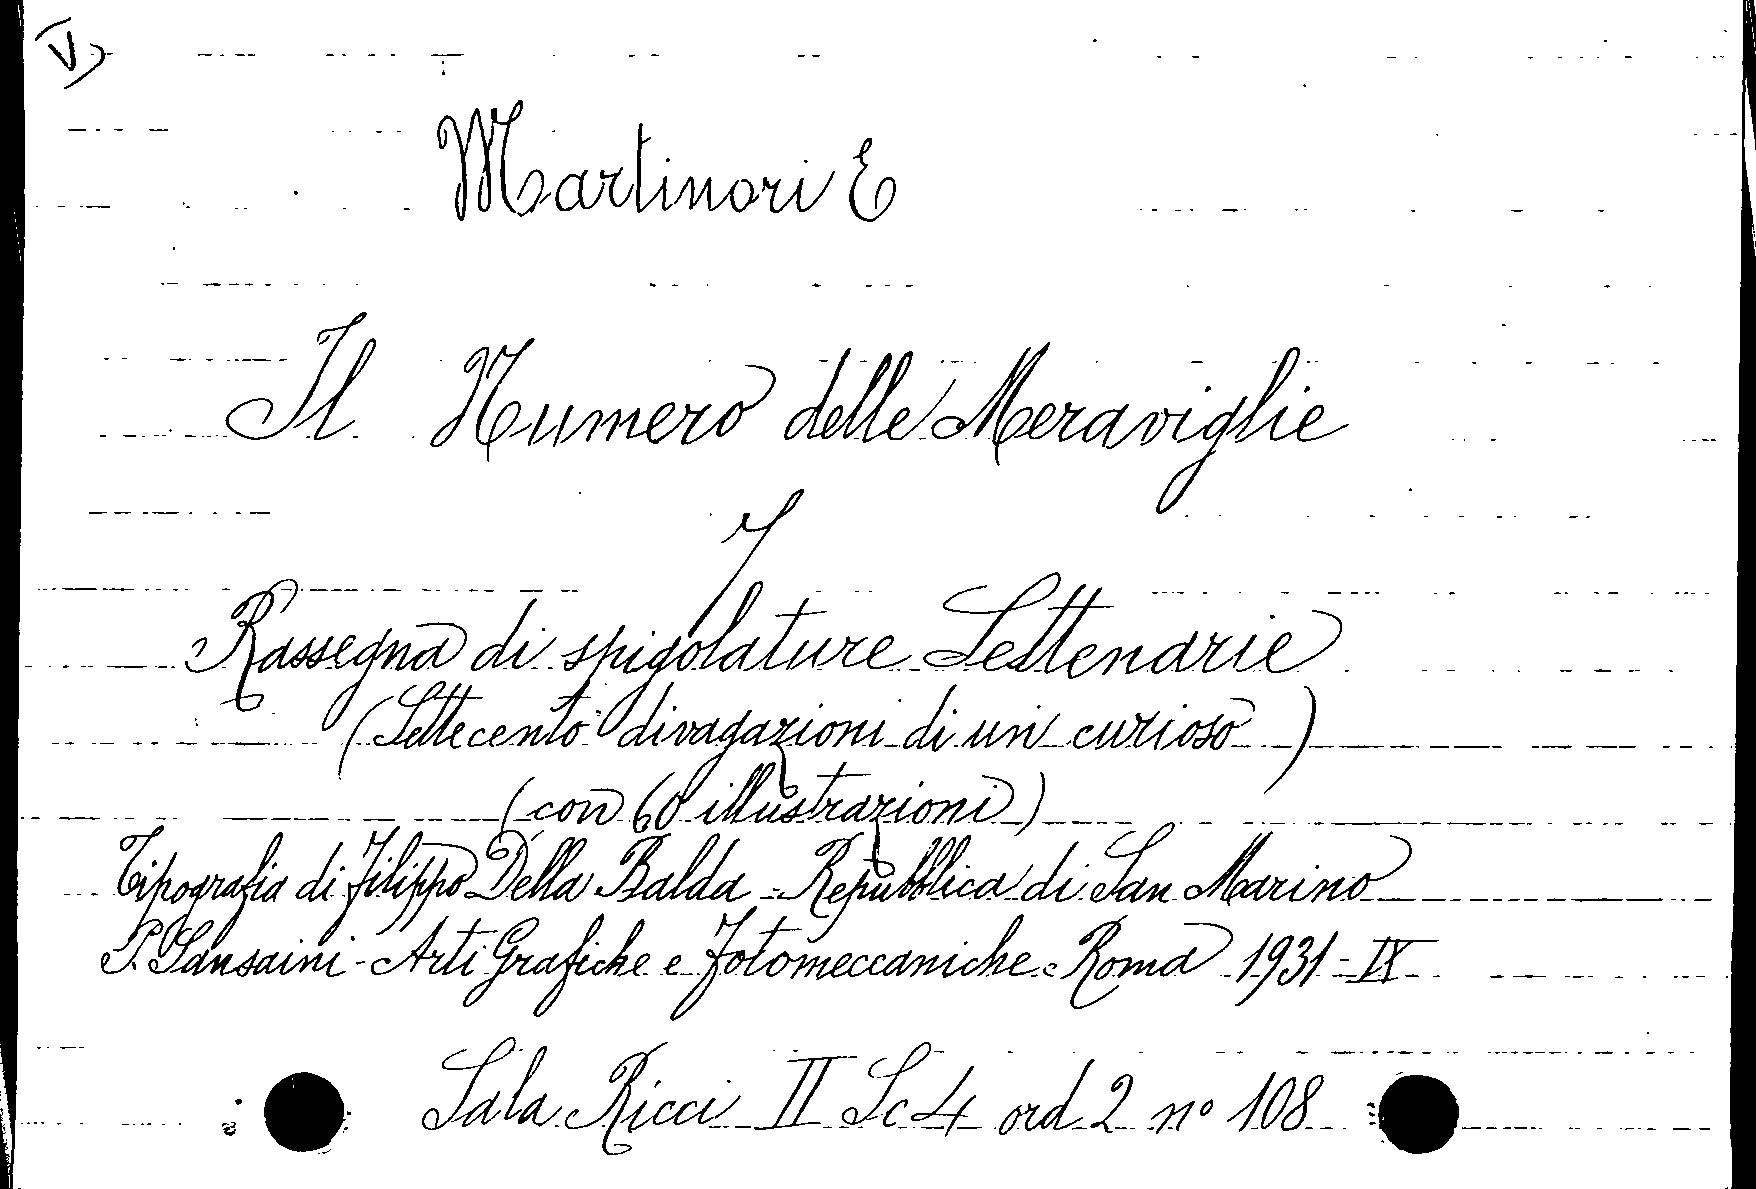 V)
Martinori E
Il Numero delle Meraviglie
7
Rassegna di spigolature Settenarie
(Settecento divagazioni di un curioso)
(con 60 illustrazioni)
Tipografia di Filippo Della Balda - Repubblica di San Marino
P. Sansaini - Arti Grafiche e Fotomeccaniche - Roma 1931 - IX
Sala Ricci II Sc 4 ord 2 nº 108